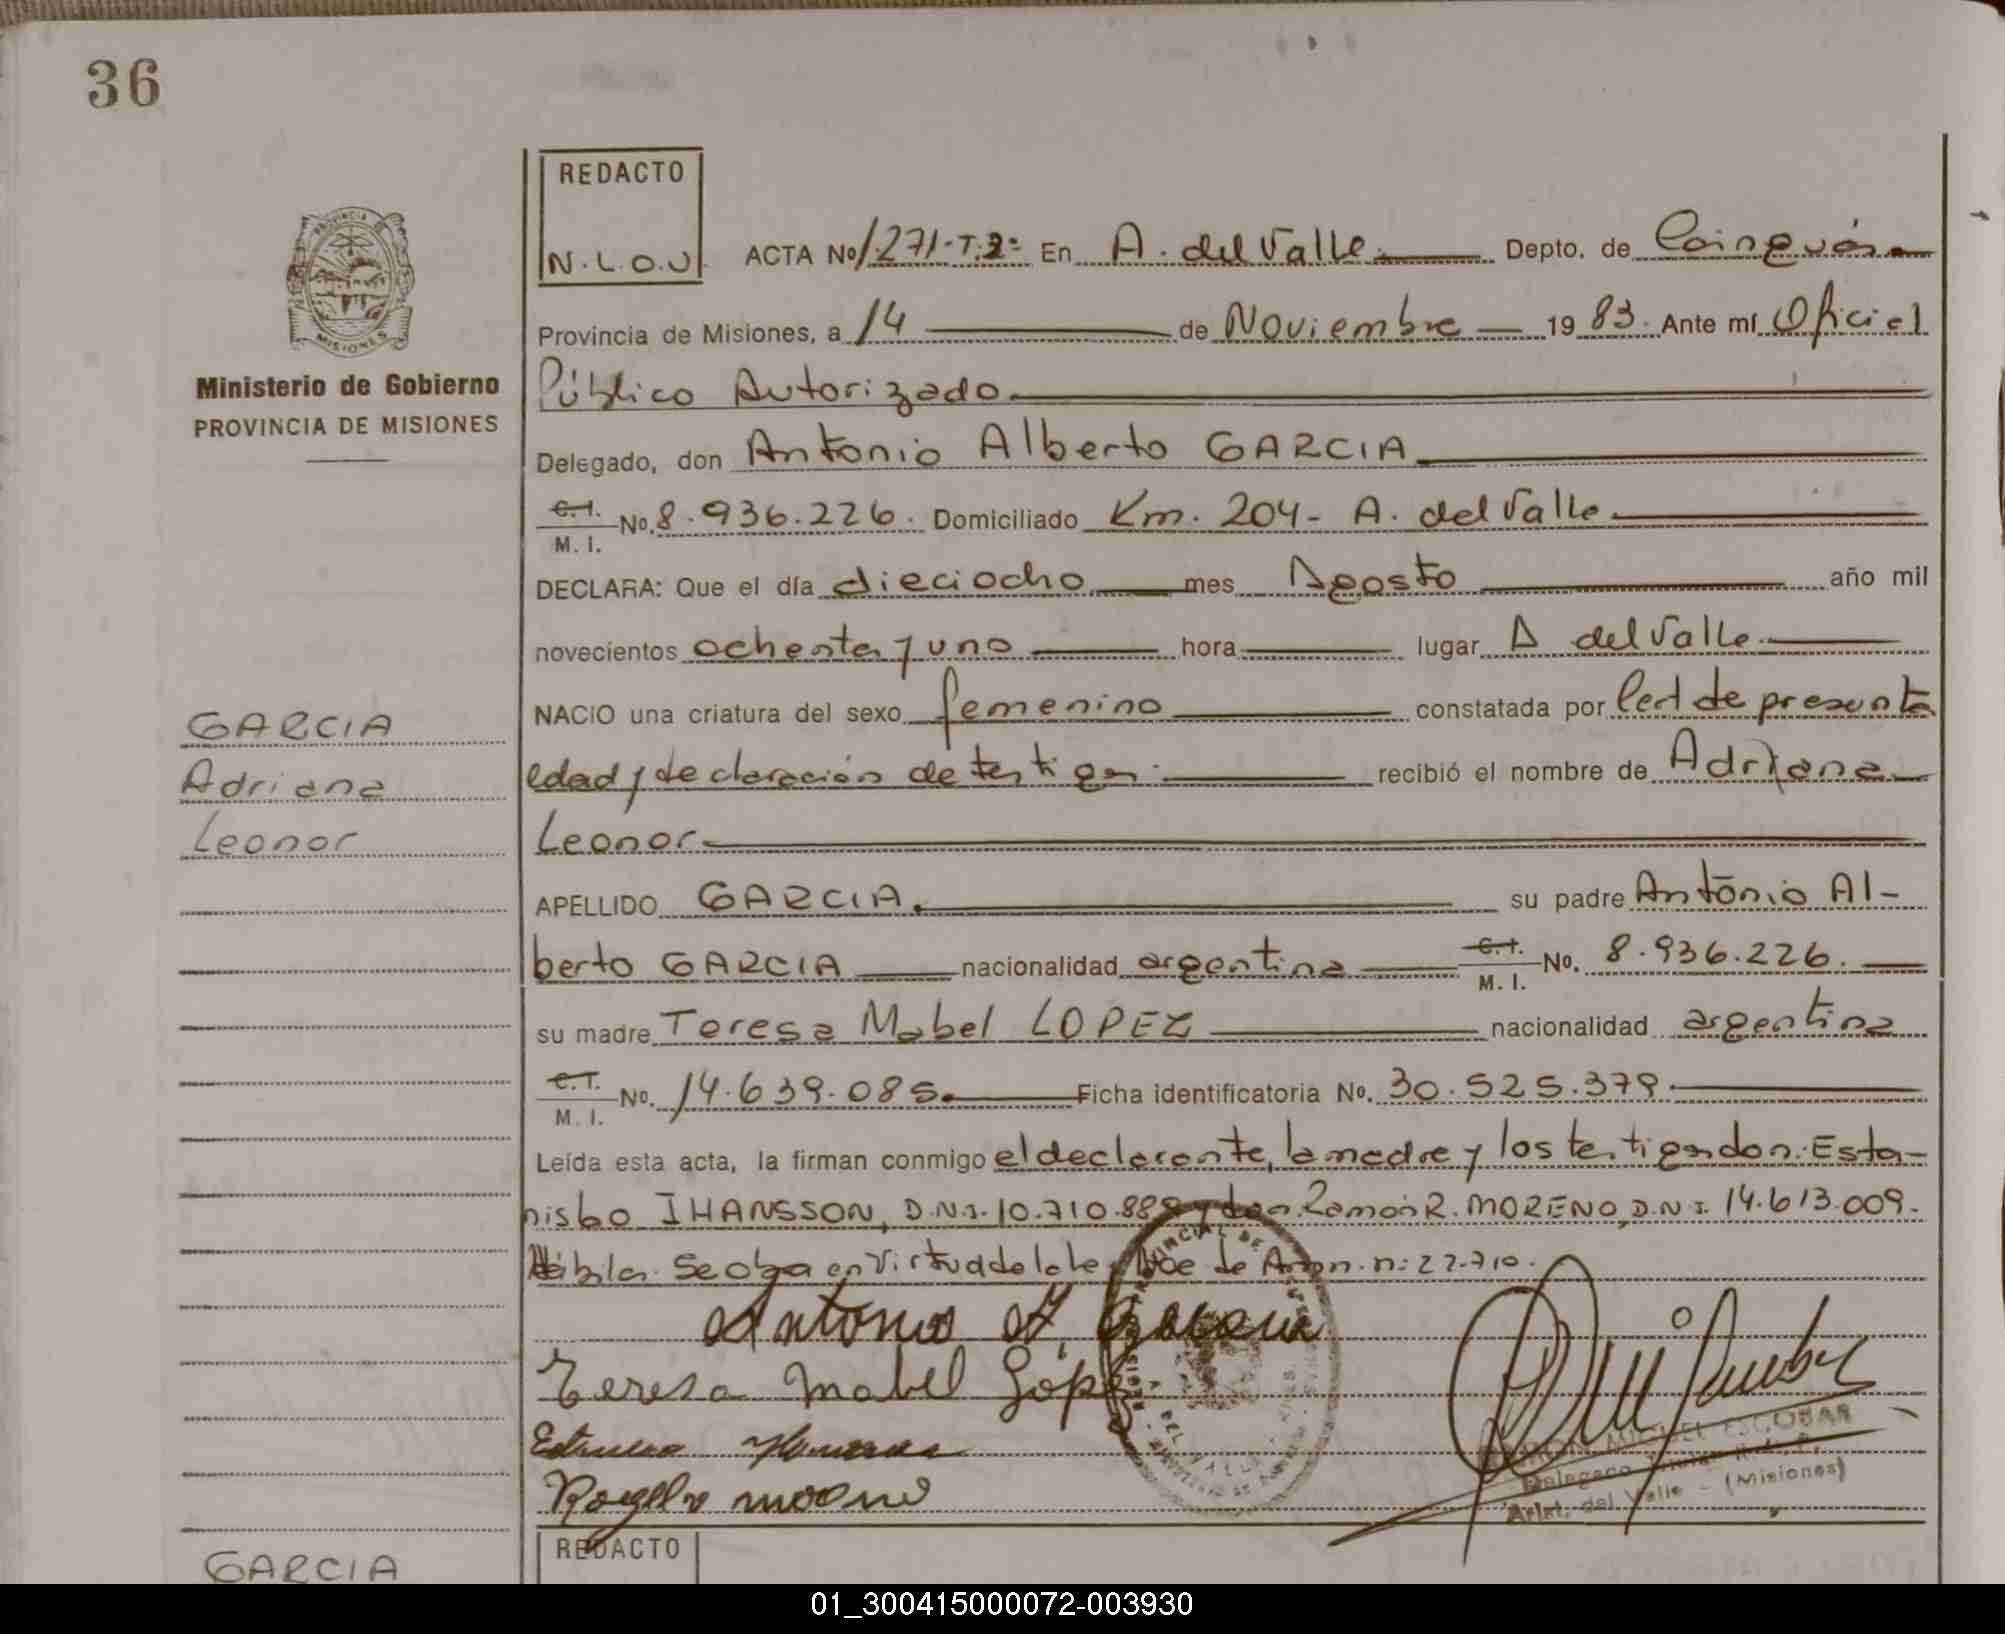 36
REDACTO
N.L.O.U
ACTA No 1.271-T.2º En A. del Valle Depto. de Cainguás
Provincia de Misiones, a 14 de Noviembre 19 83. Ante mí Oficial
Público Autorizado
PROVINCIA DE
MISIONES
Ministerio de Gobierno
PROVINCIA DE MISIONES
Delegado, don Antonio Alberto GARCIA
C.I. M.I. No. 8.936.226. Domiciliado Km. 204- A. del Valle
DECLARA: Que el día dieciocho mes Agosto año mil
novecientos ochenta y uno hora lugar A del Valle
GARCIA
Adriana
Leonor
NACIO una criatura del sexo femenino constatada por Cert de presunta
edad y declaración de testigos recibió el nombre de Adriana
Leonor
APELLIDO GARCIA su padre Antonio Al-
berto GARCIA nacionalidad argentina C.I. M.I. No. 8.936.226.
su madre Teresa Mabel LOPEZ nacionalidad argentina
C.I. M.I. No. 14.639.085. Ficha identificatoria No. 30.525.379.
Leída esta acta, la firman conmigo el declarante, la madre y los testigos don: Esta-
nislao IHANSSON, D.N.I. 10.710.889 y don Ramón R. MORENO, D.N.I. 14.613.009.
Hábiles. Se obra en virtud de la ley Nac de n: 22.710.
Antonio A. Garcia
Teresa Mabel López
Rogelio moreno
RAMON MIGUEL ESCOBAR
Delegado
Arist. del Valle - (Misiones)
GARCIA
REDACTO
01_300415000072-003930